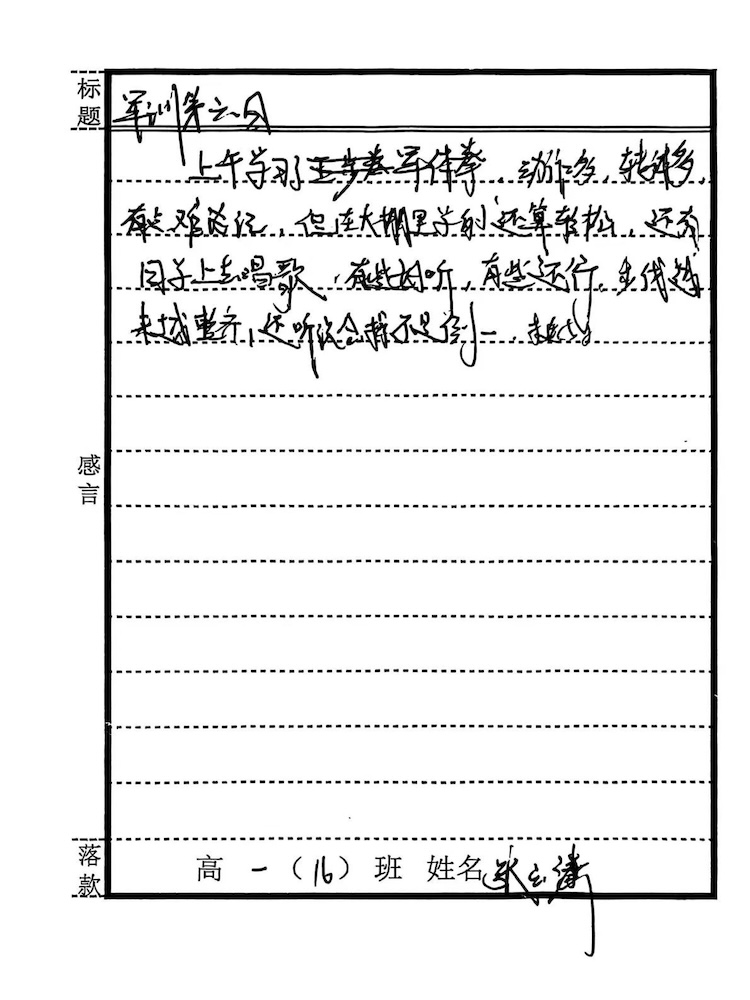 标题
军训第六日
上午学习了军体拳，动作多，转体多，
有点难记，但在大棚里学的还算轻松，还有
同学上去唱歌，有些好听，有些还行。步伐越
来越整齐，还听说会操不是倒一，
感言
落款
高一（16）班 姓名